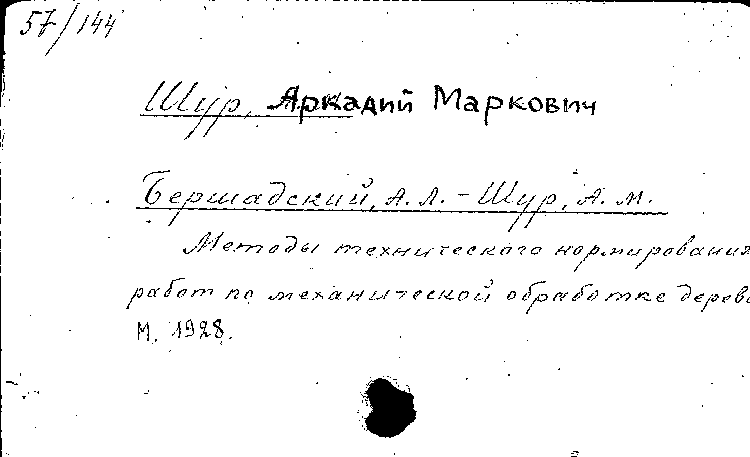 57/144
Шур, Аркадий Маркович
Бершадский, А. Л. - Шур, А. М.
Методы технического нормирования
работ по механической обработке дерева
М. 1928.